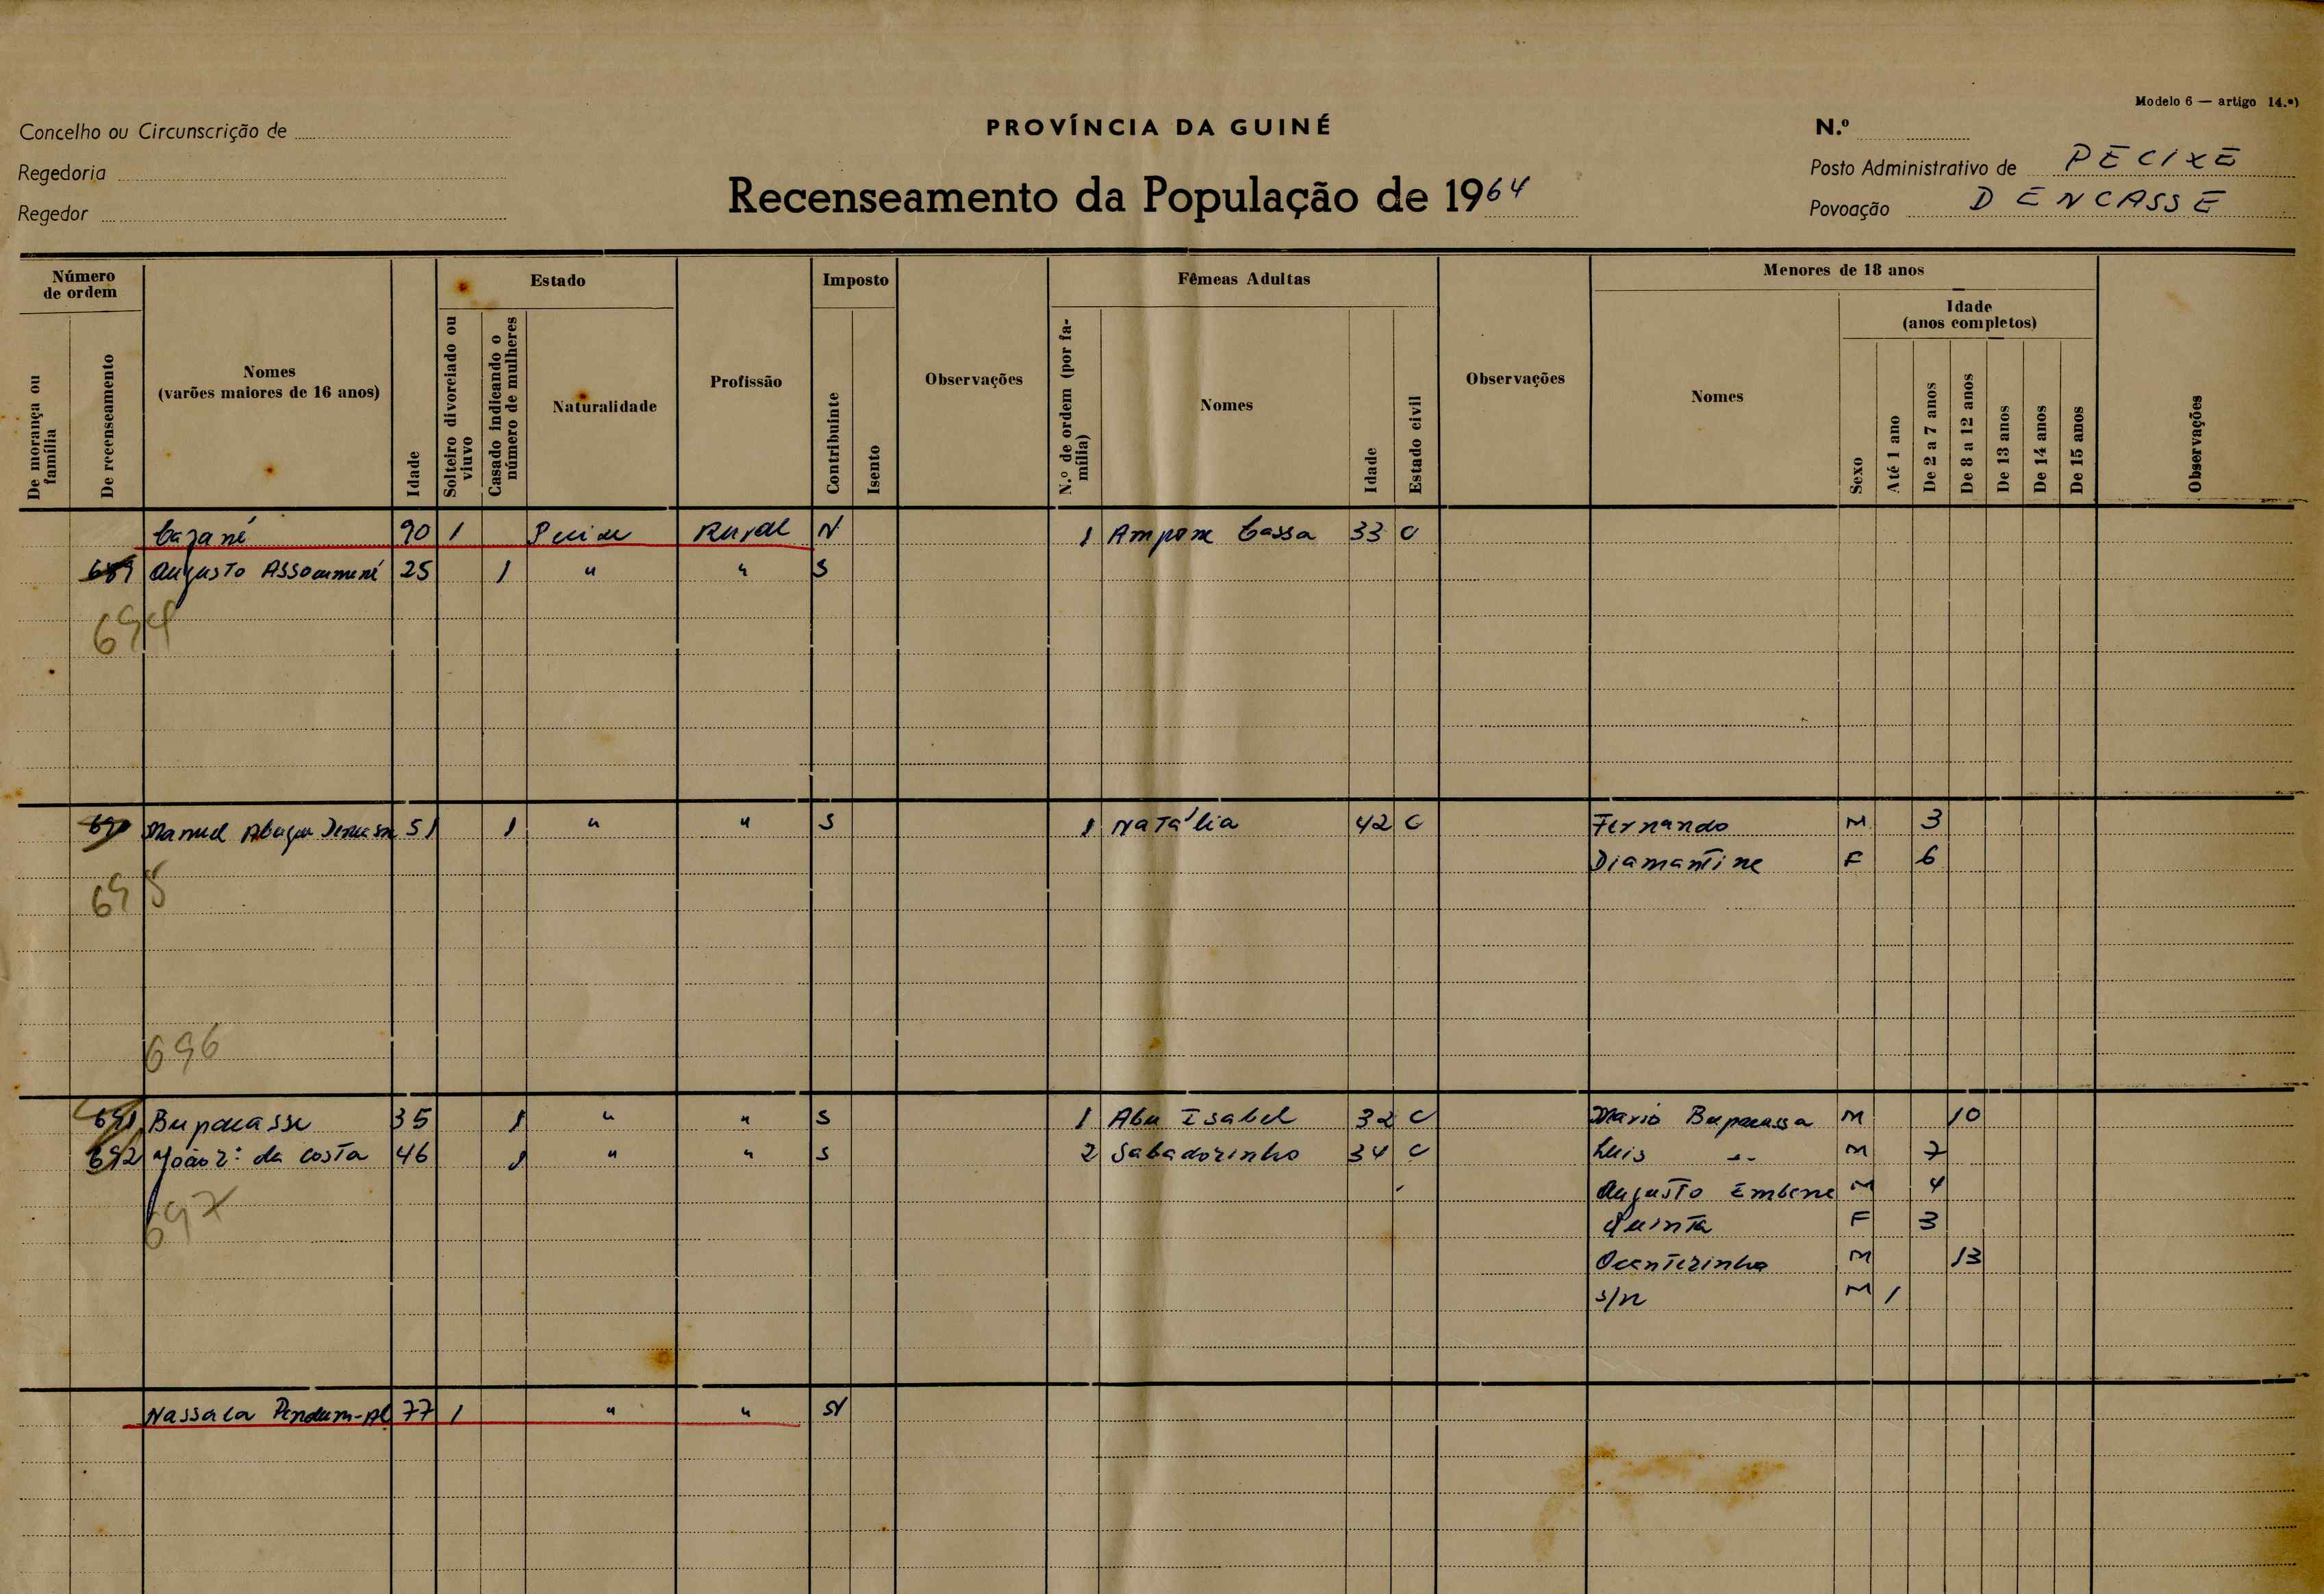 Modelo 6 — artigo 14.º)
Concelho ou Circunscrição de
PROVÍNCIA DA GUINÉ
N.º
Regedoria
Posto Administrativo de PECIXE
Regedor
Recenseamento da População de 1964
Povoação DENCASSE
Número de ordem
Estado
Imposto
Fêmeas Adultas
Menores de 18 anos
Idade (anos completos)
De morança ou família
De recenseamento
Nomes (varões maiores de 16 anos)
Idade
Solteiro divorciado ou viuvo
Casado indicando o número de mulheres
Naturalidade
Profissão
Contribuinte
Isento
Observações
N.º de ordem (por família)
Nomes
Idade
Estado civil
Observações
Nomes
Sexo
Até 1 ano
De 2 a 7 anos
De 8 a 12 anos
De 13 anos
De 14 anos
De 15 anos
Observações
Cazané 90 1 Pecixe Rural N 1 Ampone Cassa 33 C
689 Augusto 25 1 " " S
694
690 Manuel 51 1 " " S 1 Natália 42 C Fernando M 3
Diamantine F 6
695
696
691 Bupacasse 35 1 " " S 1 Abu Isabel 32 C Mario Bupacassa M 10
692 João da Costa 46 1 " " S 2 Sabadozinho 34 C Luis -- M 7
Augusto Embene M 4
697
Quinta F 3
M 13
s/n M 1
Nassala 77 1 " " N